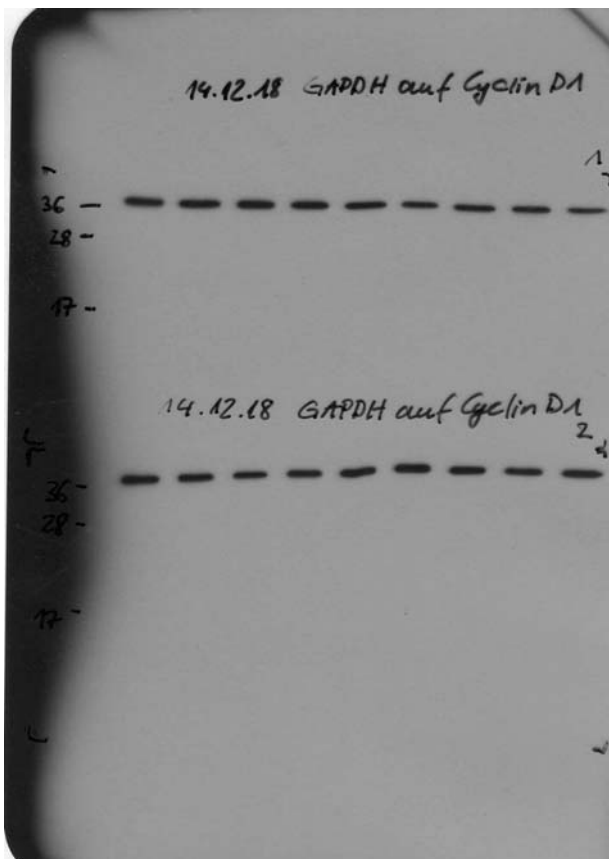 14.12.18 GAPDH auf Cyclin D1
1
36 –
28 –
17 –
14.12.18 GAPDH auf Cyclin D1
2
36 –
28 –
17 -